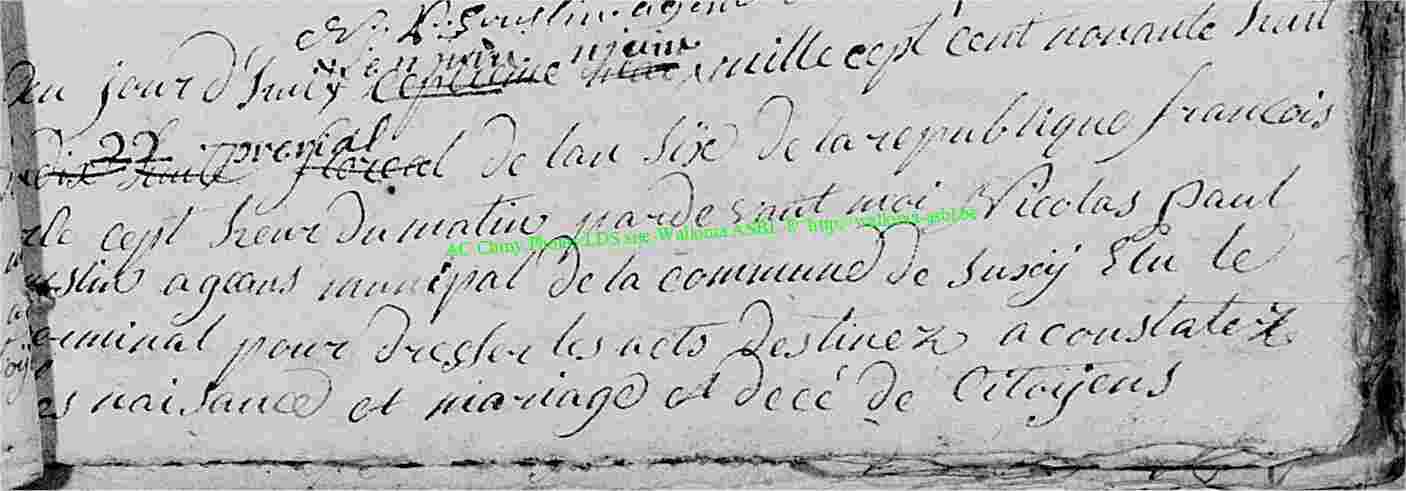 N. P. Gouslin agent
onzieme juin
Au jour d'huit septieme mai mille cept cent nonante huit
22 prerial
dix huit floreal de lan six de la republique francois
le cept heur du matin pardevant moi Nicolas paul
uslin ageans municipal de la commune de suxÿ Elu le
erminal pour dresser les acts destinez a constater
es naisance et mariage et decé de Citoÿens
AC Chiny Photo: LDS sur Wallonia ASBL © http://wallonia-asbl.be